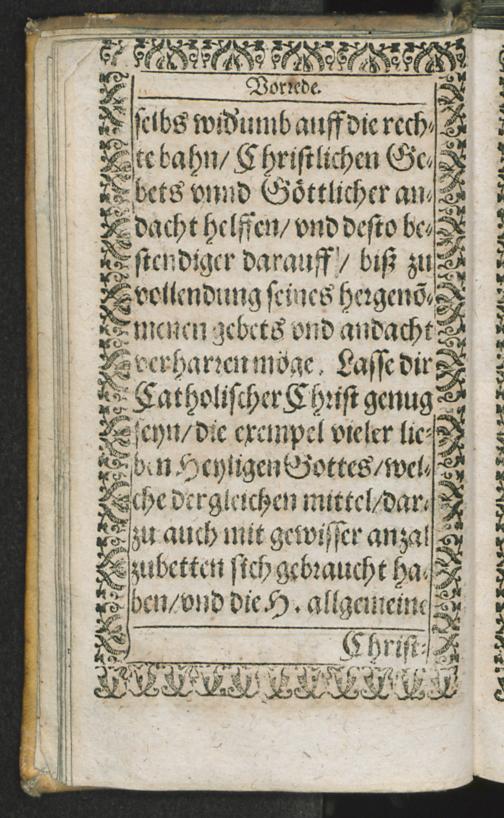 Vorrede.
selbs widumb auff die rech⸗
te bahn/ Christlichen Ge⸗
bets vnnd Göttlicher an⸗
dacht helffen/ vnd desto be⸗
stendiger darauff/ biß zu
vollendung seines hergenõ⸗
menen gebets vnd andacht
verharren möge. Lasse dir
Catholischer Christ genug
seyn/ die exempel vieler lie⸗
ben Heyligen Gottes/ wel⸗
che dergleichen mittel/ dar⸗
zu auch mit gewisser anzal
zubetten sich gebraucht ha⸗
ben/ vnd die H. allgemeine
Christ⸗